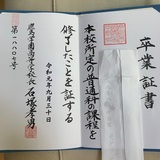 卒業証書
本校所定の普通科の課程を
修了したことを証する
令和元年九月三十日
学園高等学校長
第一八八〇七号